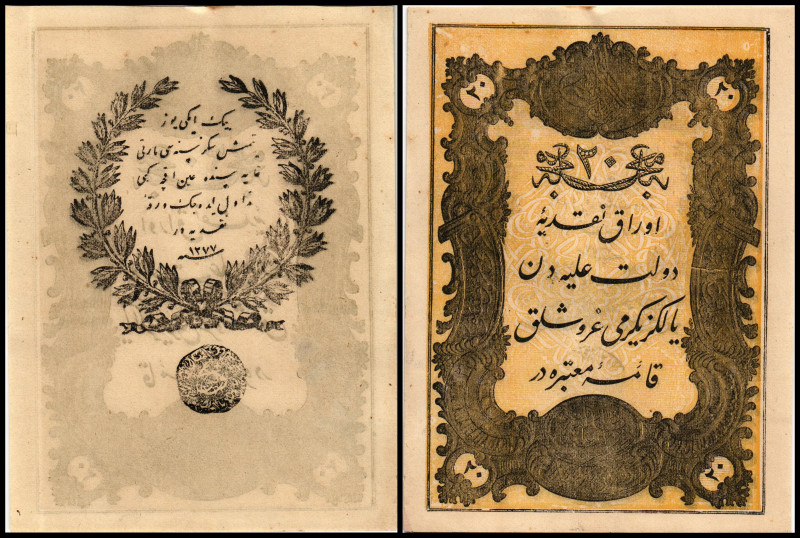 بیك ایكی یوز
یتمش سكز سنه سی مارتی
غایه سنده عین اقچه كبی
تداول ایده جك ورقۀ
نقدیه در
سنه ١٢٧٧
٢٠
٢٠
٢٠
اوراق نقدیۀ
دولت علیه دن
یالكز یكرمی غروشلق
قائمۀ معتبره در
٢٠
٢٠